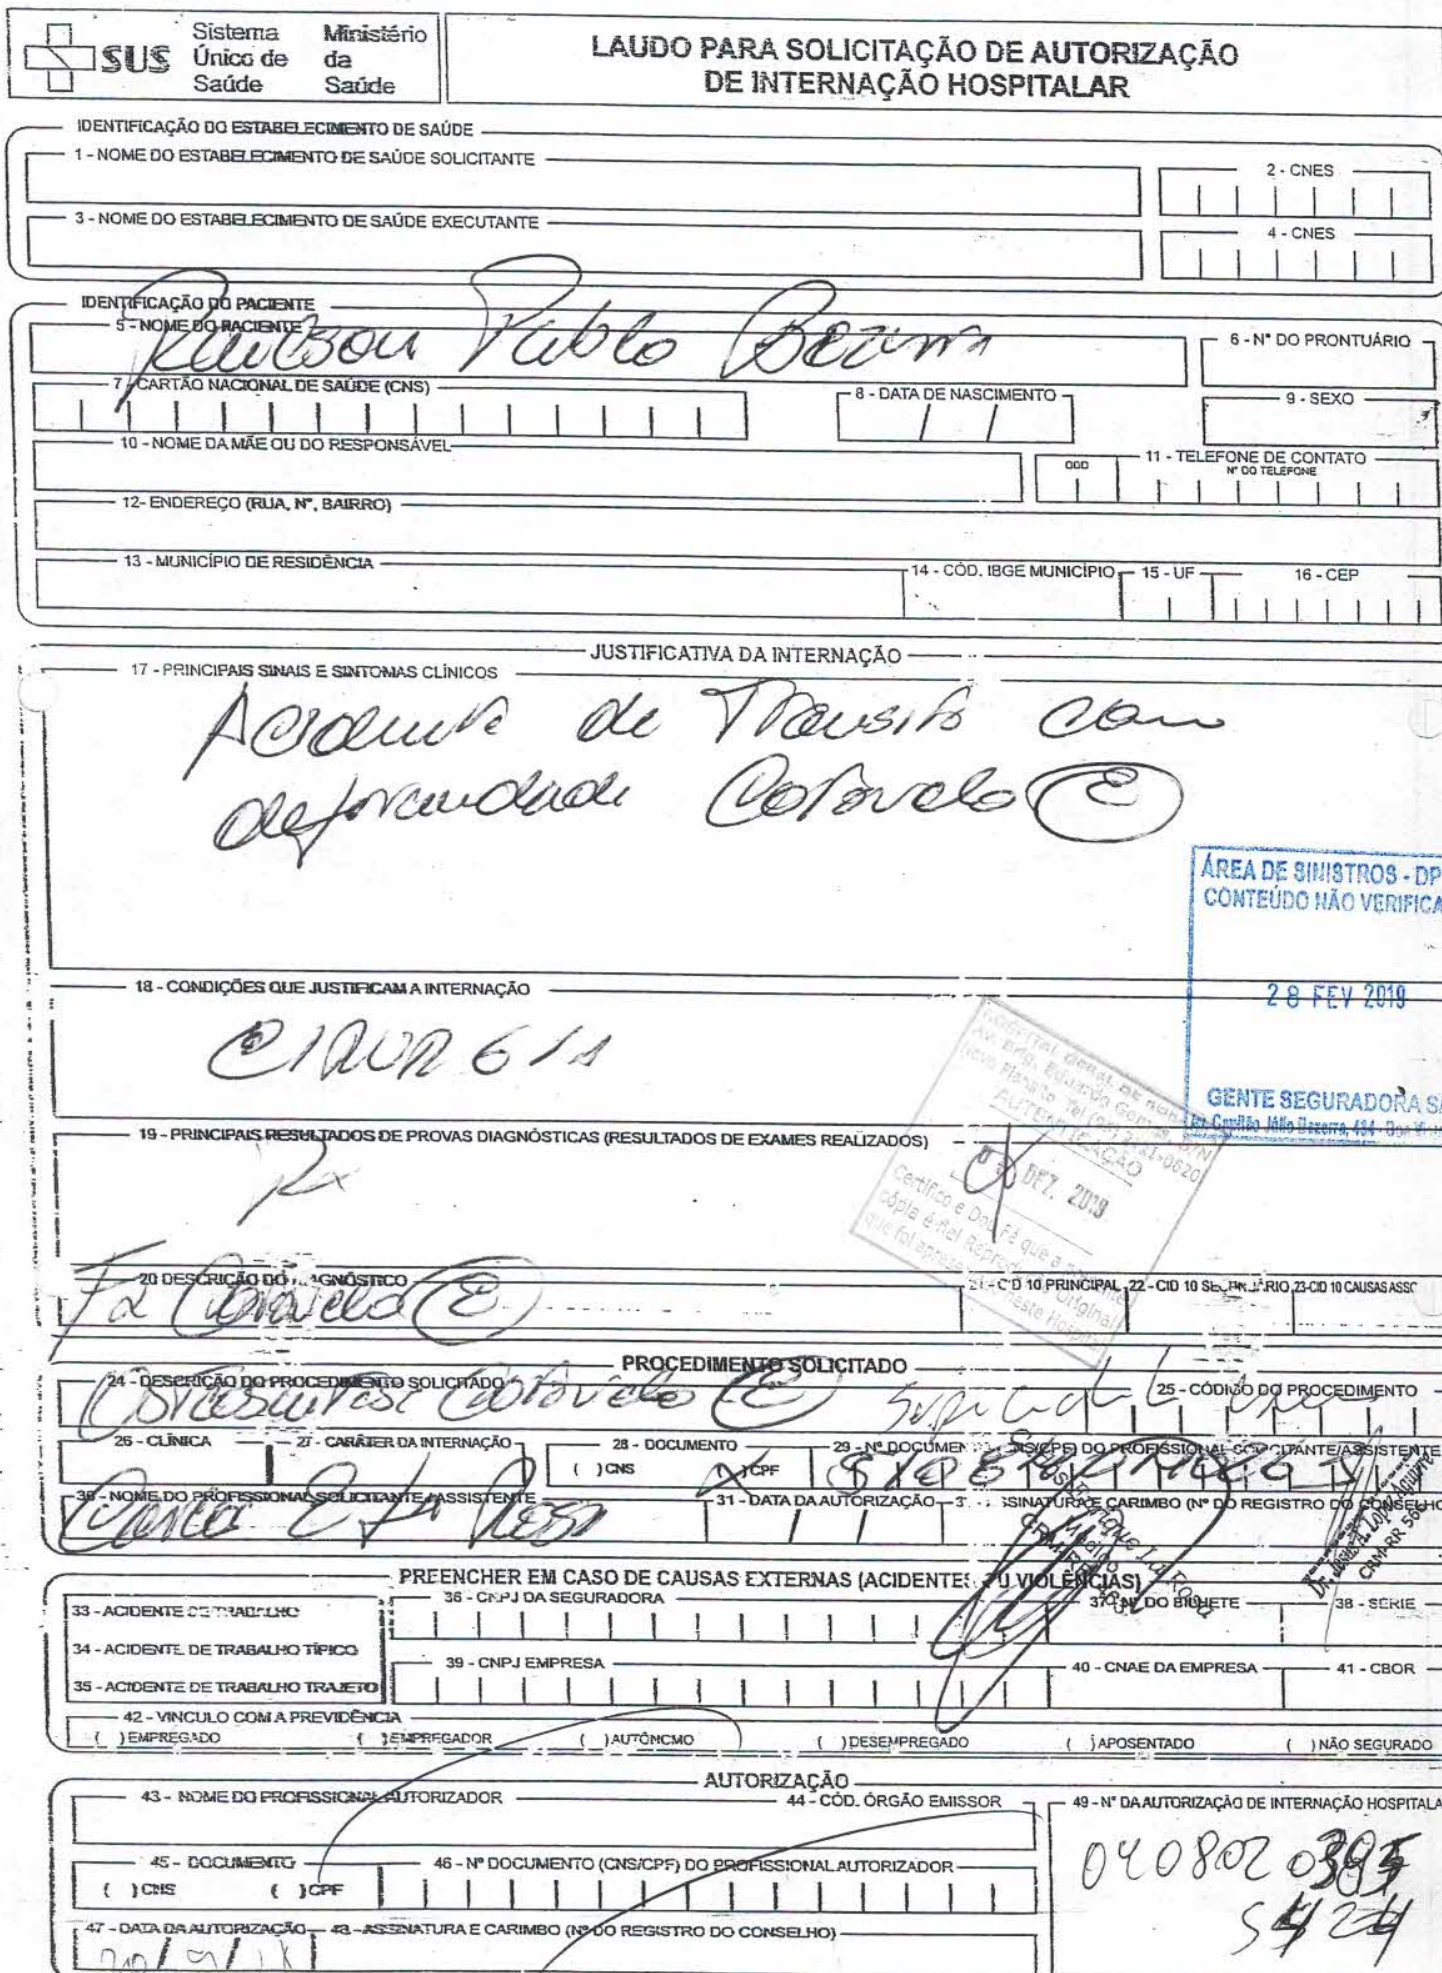 SUS
Sistema Único de Saúde
Ministério da Saúde
LAUDO PARA SOLICITAÇÃO DE AUTORIZAÇÃO
DE INTERNAÇÃO HOSPITALAR
IDENTIFICAÇÃO DO ESTABELECIMENTO DE SAÚDE
1 - NOME DO ESTABELECIMENTO DE SAÚDE SOLICITANTE
2 - CNES
3 - NOME DO ESTABELECIMENTO DE SAÚDE EXECUTANTE
4 - CNES
IDENTIFICAÇÃO DO PACIENTE
5 - NOME DO PACIENTE
Pablo
6 - N° DO PRONTUÁRIO
7 - CARTÃO NACIONAL DE SAÚDE (CNS)
8 - DATA DE NASCIMENTO
9 - SEXO
10 - NOME DA MÃE OU DO RESPONSÁVEL
11 - TELEFONE DE CONTATO
DDD
N° DO TELEFONE
12- ENDEREÇO (RUA, N°, BAIRRO)
13 - MUNICÍPIO DE RESIDÊNCIA
14 - CÓD. IBGE MUNICÍPIO
15 - UF
16 - CEP
JUSTIFICATIVA DA INTERNAÇÃO
17 - PRINCIPAIS SINAIS E SINTOMAS CLÍNICOS
Acidente de Transito com
deformidade Cotovelo E
ÁREA DE SINISTROS - DP
CONTEÚDO NÃO VERIFICA
28 FEV 2019
GENTE SEGURADORA S
18 - CONDIÇÕES QUE JUSTIFICAM A INTERNAÇÃO
CIRURGIA
AUTENTICAÇÃO
DEZ. 2019
Certifico e Dou Fé que a presente
cópia é fiel Reprodução Original
que foi apresentada neste Hospital
19 - PRINCIPAIS RESULTADOS DE PROVAS DIAGNÓSTICAS (RESULTADOS DE EXAMES REALIZADOS)
Rx
20 DESCRIÇÃO DO DIAGNÓSTICO
Fx Cotovelo E
21 - CID 10 PRINCIPAL
22 - CID 10 SECUNDÁRIO
23-CID 10 CAUSAS ASSOC
PROCEDIMENTO SOLICITADO
24 - DESCRIÇÃO DO PROCEDIMENTO SOLICITADO
Cotovelo E
25 - CÓDIGO DO PROCEDIMENTO
26 - CLÍNICA
27 - CARÁTER DA INTERNAÇÃO
28 - DOCUMENTO
( ) CNS
( ) CPF
29 - N° DOCUMENTO (CNS/CPF) DO PROFISSIONAL SOLICITANTE/ASSISTENTE
30 - NOME DO PROFISSIONAL SOLICITANTE / ASSISTENTE
31 - DATA DA AUTORIZAÇÃO
ASSINATURA E CARIMBO (N° DO REGISTRO DO CONSELHO
PREENCHER EM CASO DE CAUSAS EXTERNAS (ACIDENTES OU VIOLÊNCIAS)
33 - ACIDENTE DE TRABALHO
34 - ACIDENTE DE TRABALHO TÍPICO
35 - ACIDENTE DE TRABALHO TRAJETO
36 - CNPJ DA SEGURADORA
37 - N° DO BILHETE
38 - SÉRIE
39 - CNPJ EMPRESA
40 - CNAE DA EMPRESA
41 - CBOR
42 - VINCULO COM A PREVIDÊNCIA
( ) EMPREGADO
( ) EMPREGADOR
( ) AUTÔNOMO
( ) DESEMPREGADO
( ) APOSENTADO
( ) NÃO SEGURADO
AUTORIZAÇÃO
43 - NOME DO PROFISSIONAL AUTORIZADOR
44 - CÓD. ÓRGÃO EMISSOR
49 - N° DA AUTORIZAÇÃO DE INTERNAÇÃO HOSPITALA
040802
45 - DOCUMENTO
( ) CNS
( ) CPF
46 - N° DOCUMENTO (CNS/CPF) DO PROFISSIONAL AUTORIZADOR
47 - DATA DA AUTORIZAÇÃO
48 - ASSINATURA E CARIMBO (N° DO REGISTRO DO CONSELHO)